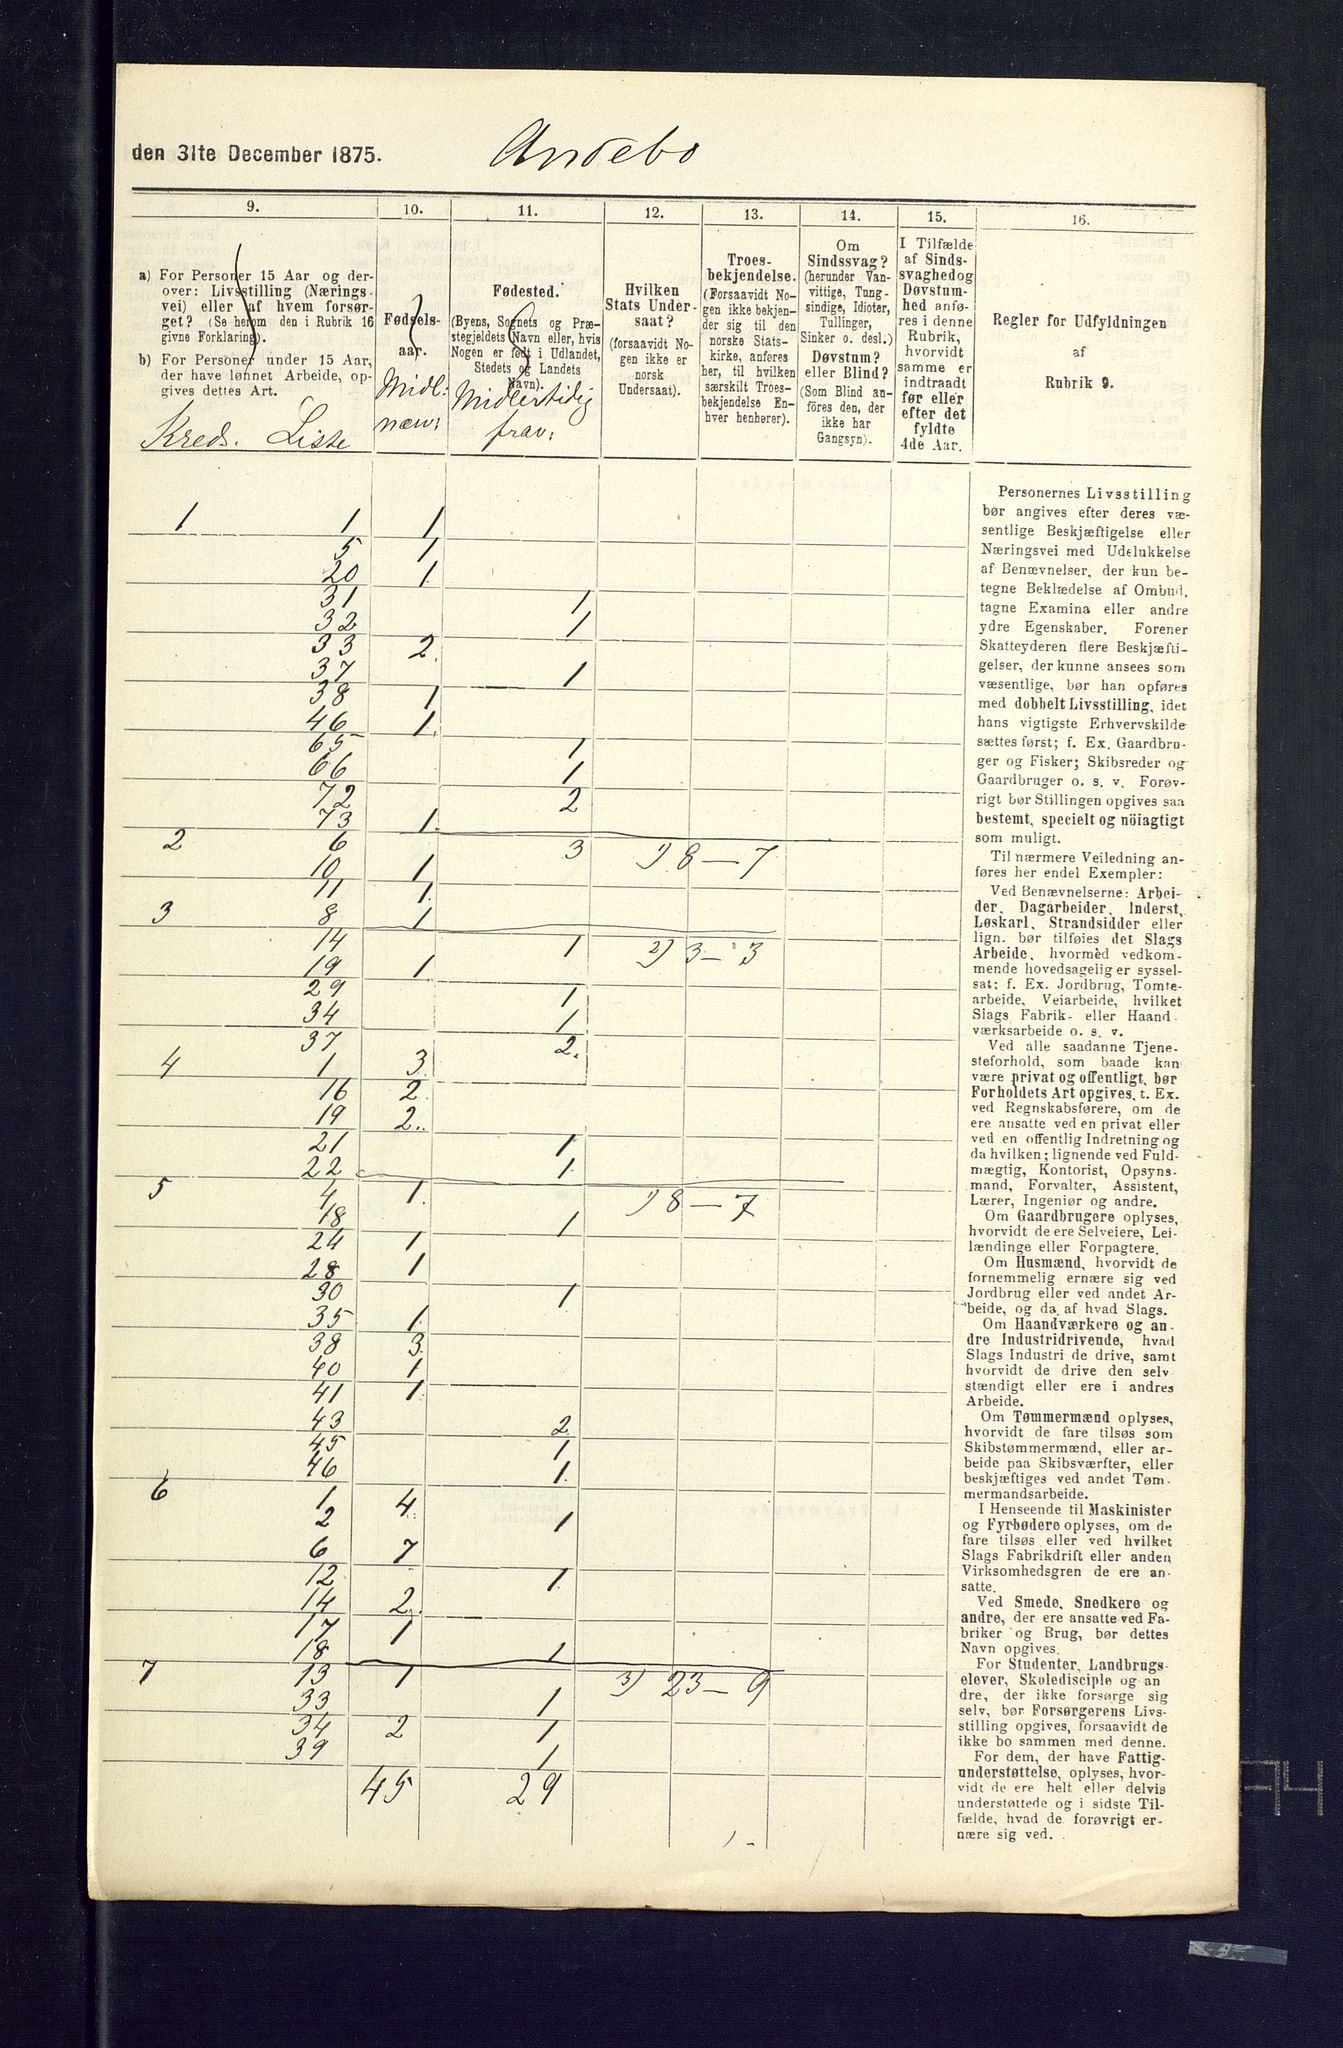 den 31te December 1875. Andebo
9. 10. 11. 12. 13. 14. 15. 16.
a) For Personer 15 Aar og der-
over: Livsstilling (Nærings-
vei) eller af hvem forsør-
get? (Se herom den i Rubrik 16
givne Forklaring).
b) For Personer under 15 Aar,
der have lønnet Arbeide, op-
gives dettes Art.
Kreds. Liste
Fødsels-
aar.
Midl:
næv:
Fødested.
(Byens, Sognets og Præ-
stegjeldets Navn eller, hvis
Nogen er født i Udlandet,
Stedets og Landets
Navn).
Midlertidig
frav:
Hvilken
Stats Under-
saat?
(forsaavidt No-
gen ikke er
norsk
Undersaat).
Troes-
bekjendelse.
(Forsaavidt No-
gen ikke bekjen-
der sig til den
norske Stats-
kirke, anføres
her, til hvilken
særskilt Troes-
bekjendelse En-
hver henhører).
Om
Sindssvag?
(herunder Van-
vittige, Tung-
sindige, Idioter,
Tullinger,
Sinker o. desl.)
Døvstum?
eller Blind?
(Som Blind an-
føres den, der
ikke har
Gangsyn).
I Tilfælde
af Sinds-
svaghed og
Døvstum-
hed anfø-
res i denne
Rubrik,
hvorvidt
samme er
indtraadt
før eller
efter det
fyldte
4de Aar.
Regler for Udfyldningen
af
Rubrik 9.
1 1 1
5 1
20 1
31 1
32 1
33 2
37 1
38 1
46 1
65 1
66 1
72 2
73 1
2 6 3 1) 8—7
10 1
11 1
3 8 1
14 1 2) 3—3
19 1
29 1
34 1
37 2
4 1 3
16 2
19 2
21 1
22 1
5 4 1 1) 8—7
18 1
24 1
28 1
30 1
35 1
38 3
40 1
41 1
43 2
45 1
46 1
6 1 4
2 1
6 7
12 1
14 2
17 1
18 1
7 13 1 3) 23—9
33 1
34 2 1
39 1
45 29
Personernes Livsstilling
bør angives efter deres væ-
sentlige Beskjæftigelse eller
Næringsvei med Udelukkelse
af Benævnelser, der kun be-
tegne Beklædelse af Ombud,
tagne Examina eller andre
ydre Egenskaber. Forener
Skatteyderen flere Beskjæfti-
gelser, der kunne ansees som
væsentlige, bør han opføres
med dobbelt Livsstilling, idet
hans vigtigste Erhvervskilde
sættes først; f. Ex. Gaardbru-
ger og Fisker; Skibsreder og
Gaardbruger o. s. v. Forøv-
rigt bør Stillingen opgives saa
bestemt, specielt og nöiagtigt
som muligt.
Til nærmere Veiledning an-
føres her endel Exempler:
Ved Benævnelserne: Arbei-
der, Dagarbeider, Inderst,
Løskarl, Strandsidder eller
lign. bør tilføies det Slags
Arbeide, hvormed vedkom-
mende hovedsagelig er syssel-
sat; f. Ex. Jordbrug, Tomte-
arbeide, Veiarbeide, hvilket
Slags Fabrik- eller Haand
værksarbeide o. s. v.
Ved alle saadanne Tjene-
steforhold, som baade kan
være privat og offentligt, bør
Forholdets Art opgives, t. Ex.
ved Regnskabsførere, om de
ere ansatte ved en privat eller
ved en offentlig Indretning og
da hvilken; lignende ved Fuld-
mægtig, Kontorist, Opsyns-
mand, Forvalter, Assistent,
Lærer, Ingeniør og andre.
Om Gaardbrugere oplyses,
hvorvidt de ere Selveiere, Lei-
lændinge eller Forpagtere.
Om Husmænd, hvorvidt de
fornemmelig ernære sig ved
Jordbrug eller ved andet Ar-
beide, og da af hvad Slags.
Om Haandværkere og an
dre Industridrivende, hvad
Slags Industri de drive, samt
hvorvidt de drive den selv
stændigt eller ere i andres
Arbeide.
Om Tømmermænd oplyses,
hvorvidt de fare tilsøs som
Skibstømmermænd, eller ar-
beide paa Skibsværfter, eller
beskjæftiges ved andet Tøm-
mermandsarbeide.
I Henseende til Maskinister
og Fyrbødere oplyses, om de
fare tilsøs eller ved hvilket
Slags Fabrikdrift eller anden
Virksomhedsgren de ere an-
satte.
Ved Smede, Snedkere og
andre, der ere ansatte ved Fa-
briker og Brug, bør dettes
Navn opgives.
For Studenter, Landbrugs-
elever, Skoledisciple og an
dre, der ikke forsørge sig
selv, bør Forsørgerens Livs-
stilling opgives, forsaavidt de
ikke bo sammen med denne.
For dem, der have Fattig-
understøttelse, oplyses, hvor-
vidt de ere helt eller delvis
understøttede og i sidste Til-
fælde, hvad de forøvrigt er-
nære sig ved.